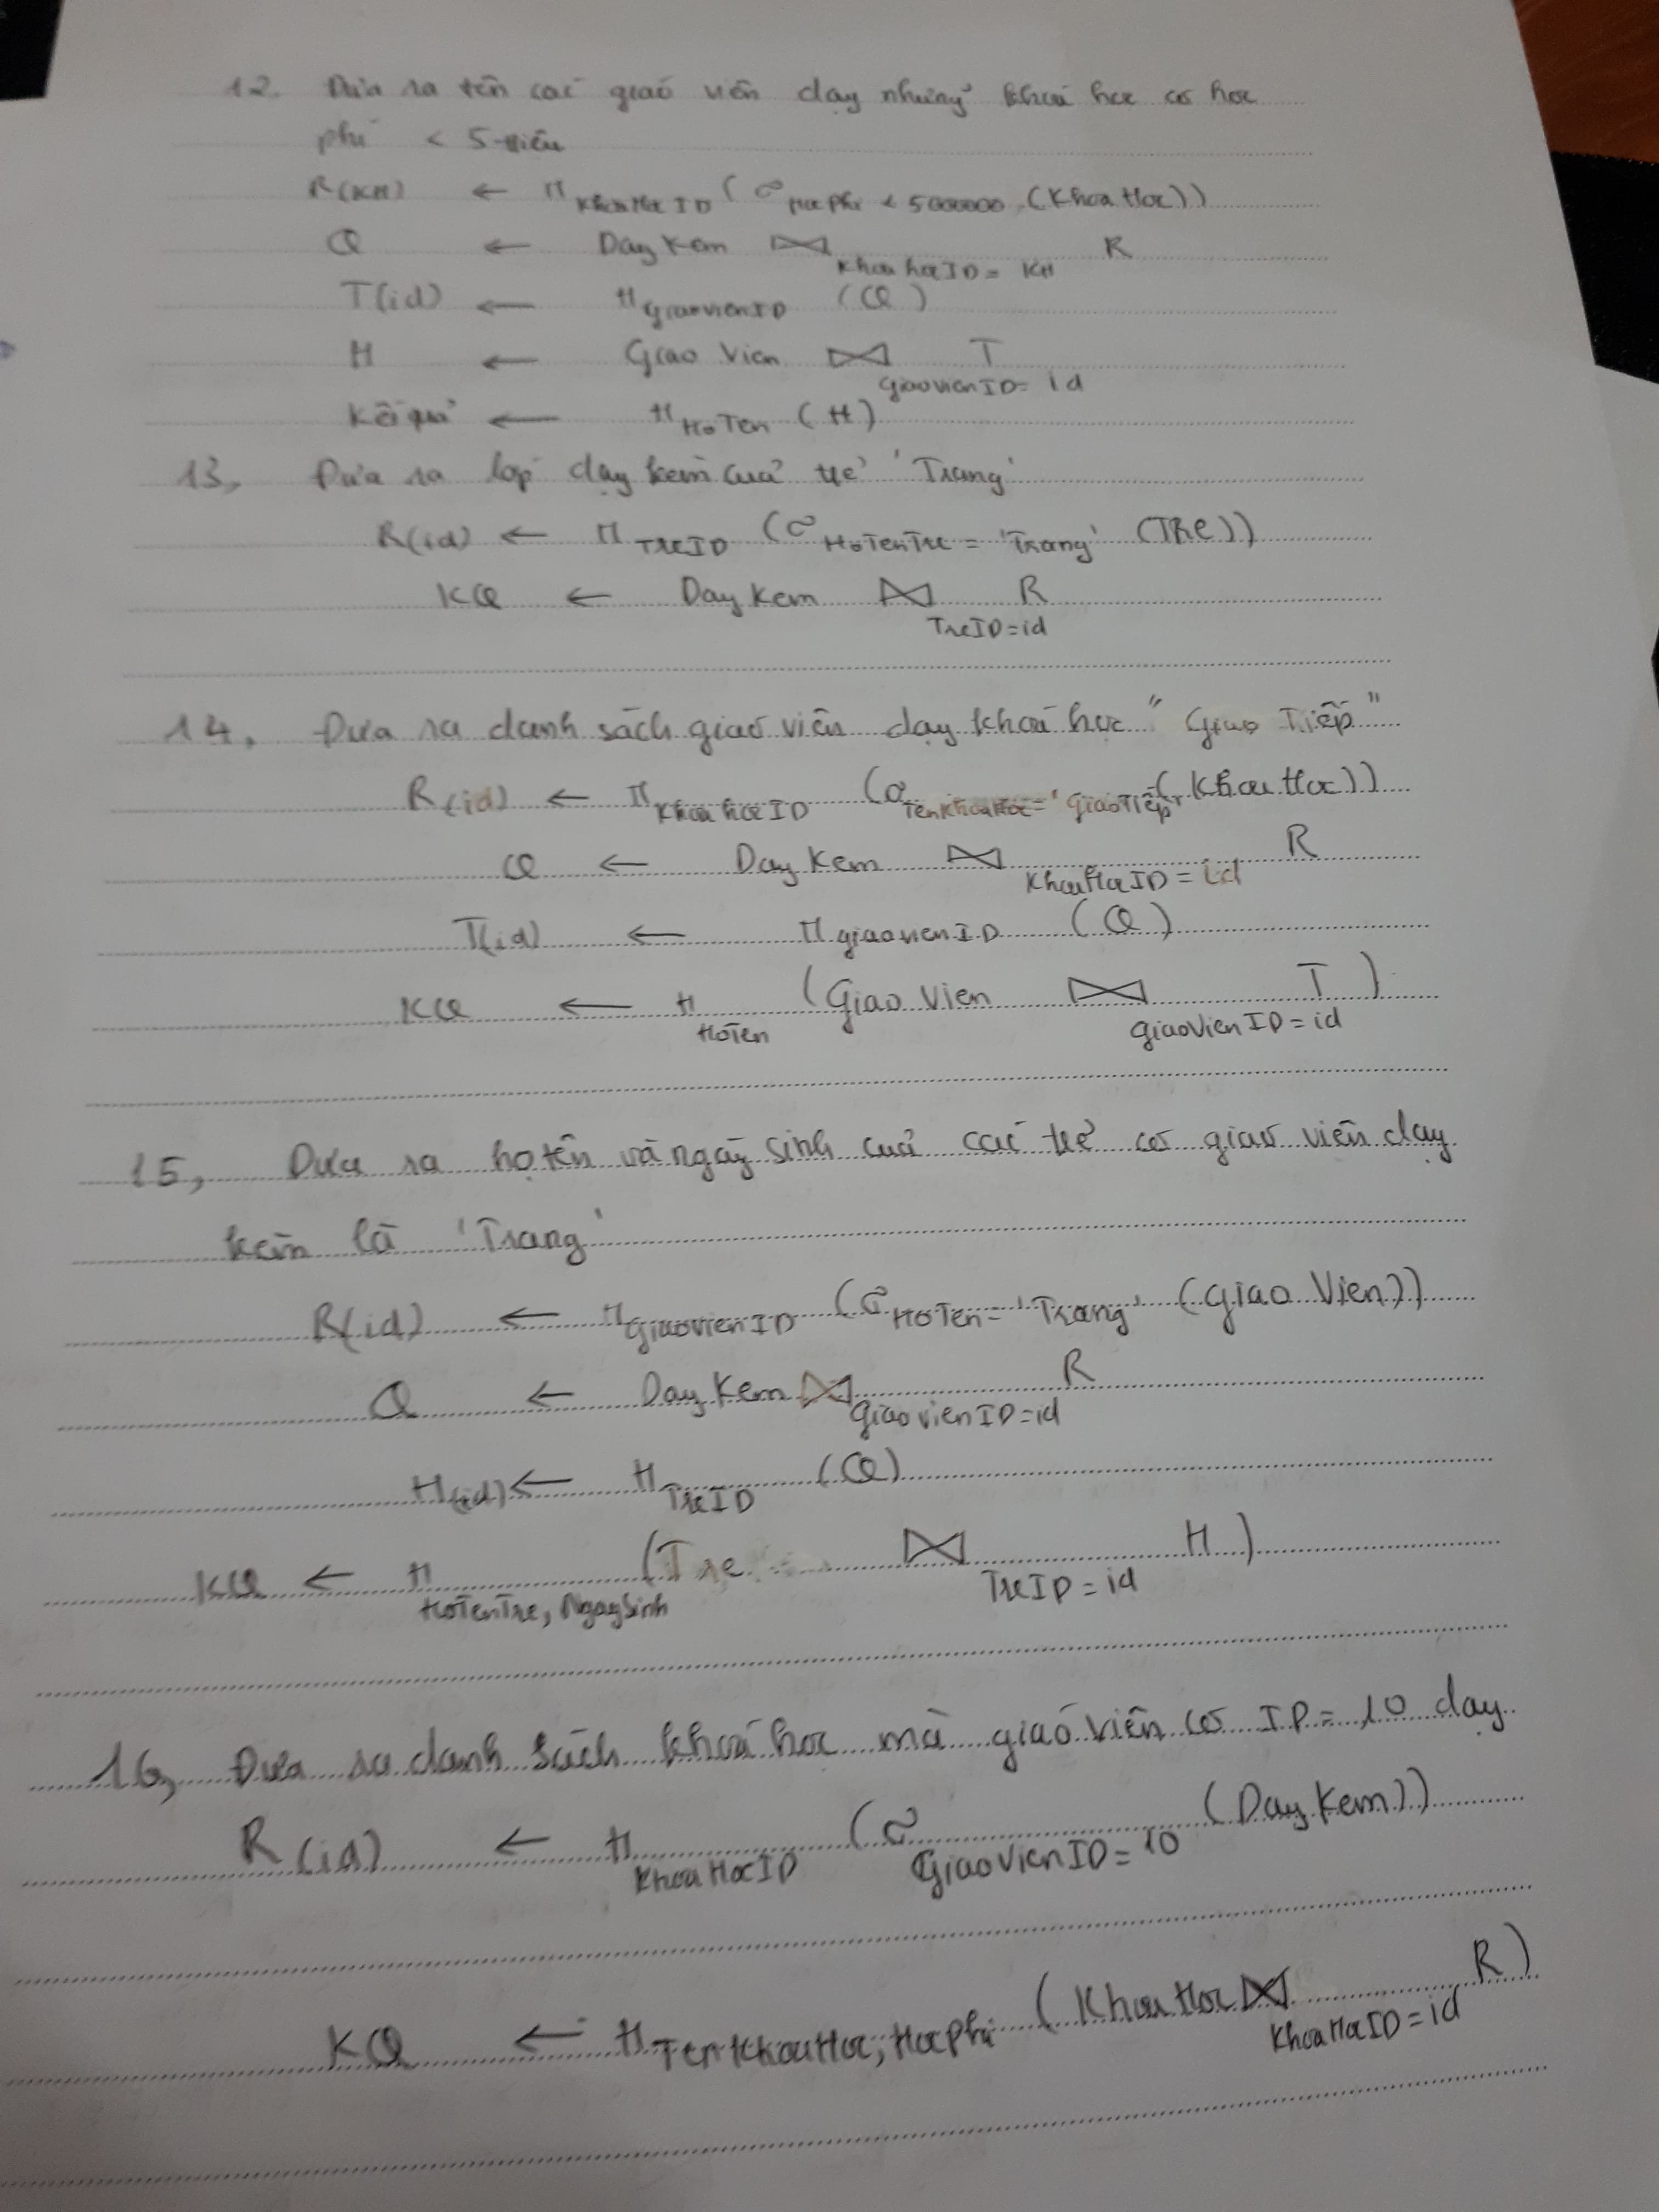 12. Đưa ra tên các giáo viên dạy những khoá học có học
phí < 5 triệu
R(KH) ← π KhoaHocID (σ HocPhi < 5000000 (KhoaHoc))
Q ← DayKem ⋈ KhoahocID = KH R
T(id) ← π GiaovienID (Q)
H ← GiaoVien ⋈ GiaovienID = id T
Kết quả ← π HoTen (H)
13, Đưa ra lớp dạy kèm của trẻ 'Trang'
R(id) ← π TreID (σ HoTenTre = 'Trang' (Tre))
KQ ← DayKem ⋈ TreID = id R
14, Đưa ra danh sách giáo viên dạy khoá học "Giao Tiếp"
R(id) ← π KhoahocID (σ TenKhoaHoc = 'GiaoTiếp' (KhoaHoc))
Q ← DayKem ⋈ KhoaHocID = id R
T(id) ← π giaovienID (Q)
KQ ← π HoTen (GiaoVien ⋈ GiaoVienID = id T)
15, Đưa ra họ tên và ngày sinh của các trẻ có giáo viên dạy
kèm là 'Trang'
R(id) ← π GiaovienID (σ HoTen = 'Trang' (GiaoVien))
Q ← DayKem ⋈ GiaovienID = id R
H(id) ← π TreID (Q)
KQ ← π HoTenTre, NgaySinh (Tre ⋈ TreID = id H)
16, Đưa ra danh sách khoá học mà giáo viên có ID = 10 dạy
R(id) ← π KhoaHocID (σ GiaoVienID = 10 (DayKem))
KQ ← π TenKhoaHoc, HocPhi (KhoaHoc ⋈ KhoaHocID = id R)